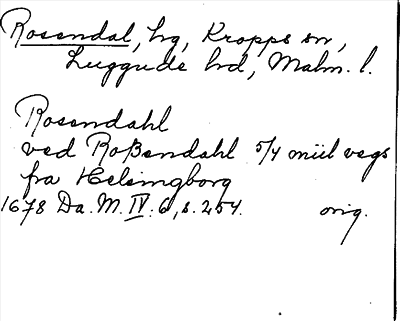 Rosendal, hg, Kropps sn,
Luggude hd, Malm. l.
Rosendahl
ved Roßendahl 5/4 miil vegs
fra Helsingborg
1678 Da. M. IV: 6, s. 254. orig.